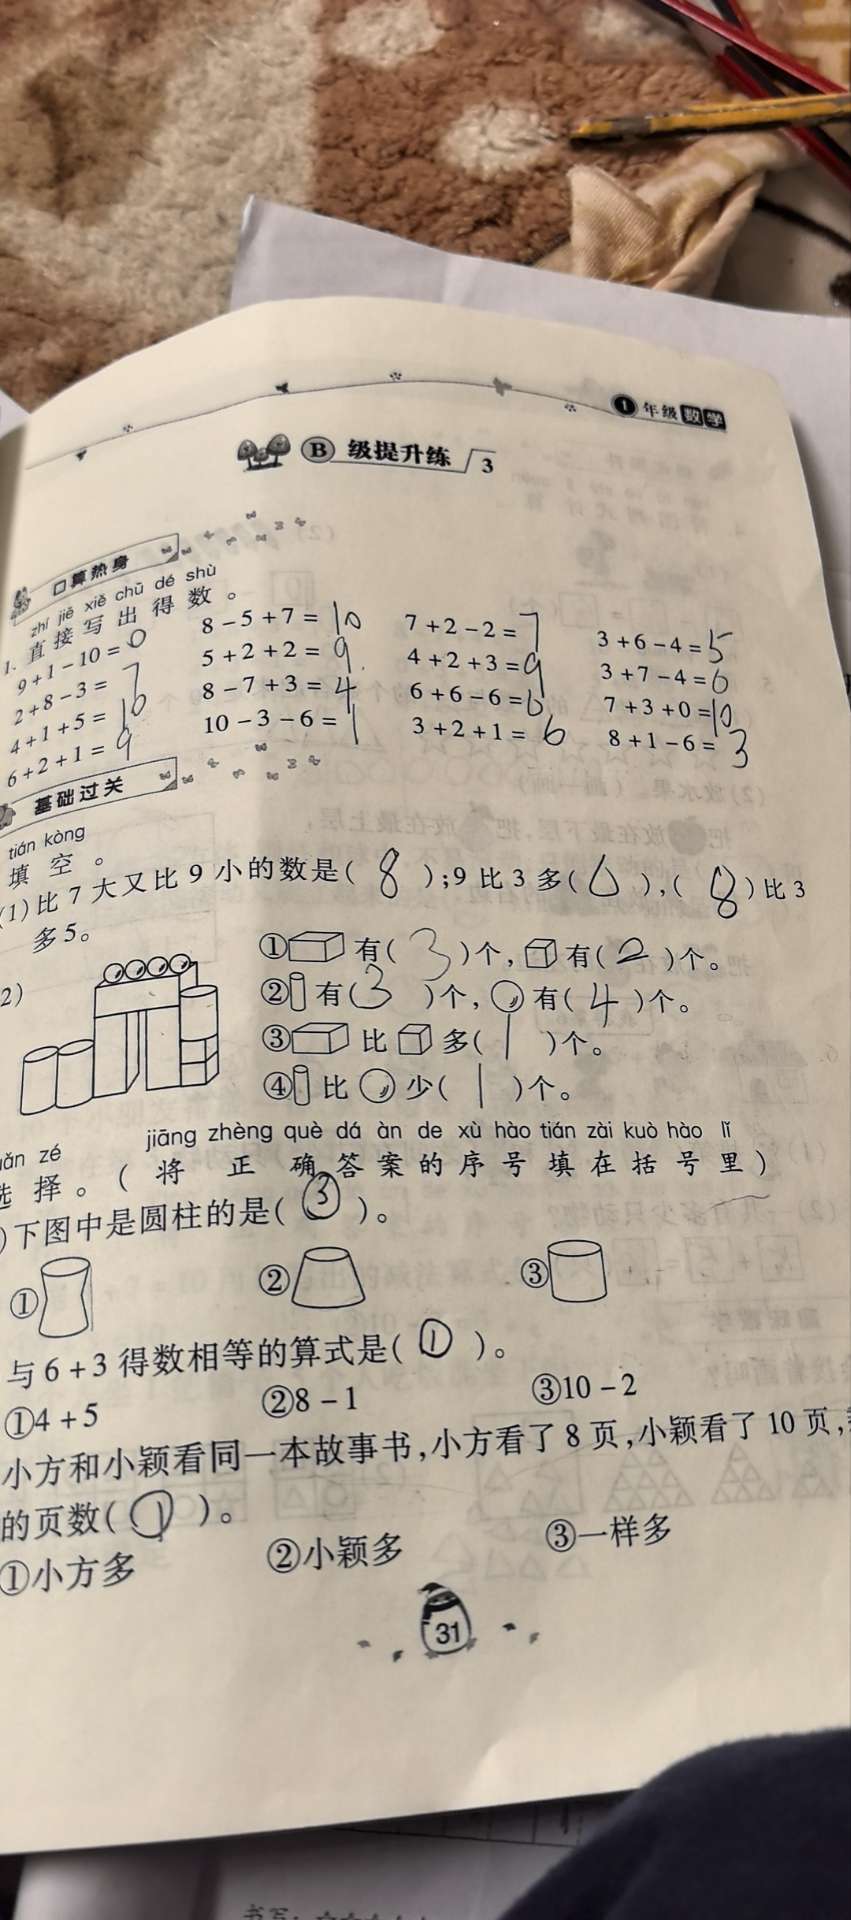 1年级数学
B级提升练 3
口算热身
zhí jiē xiě chū dé shù
1. 直接写出得数。
9+1-10=0 8-5+7=10 7+2-2=7 3+6-4=5
2+8-3=7 5+2+2=9 4+2+3=9 3+7-4=6
4+1+5=10 8-7+3=4 6+6-6=6 7+3+0=10
6+2+1=9 10-3-6=1 3+2+1=6 8+1-6=3
基础过关
tián kòng
填空。
(1)比7大又比9小的数是(8);9比3多(6),(8)比3
多5。
2)
①有(3)个,有(2)个。
②有(3)个,有(4)个。
③比多(1)个。
④比少(1)个。
jiāng zhèng què dá àn de xù hào tián zài kuò hào lǐ
择。(将正确答案的序号填在括号里)
)下图中是圆柱的是(③)。
① ② ③
与6+3得数相等的算式是(①)。
①4+5 ②8-1 ③10-2
小方和小颖看同一本故事书,小方看了8页,小颖看了10页,
的页数(①)。
①小方多 ②小颖多 ③一样多
31